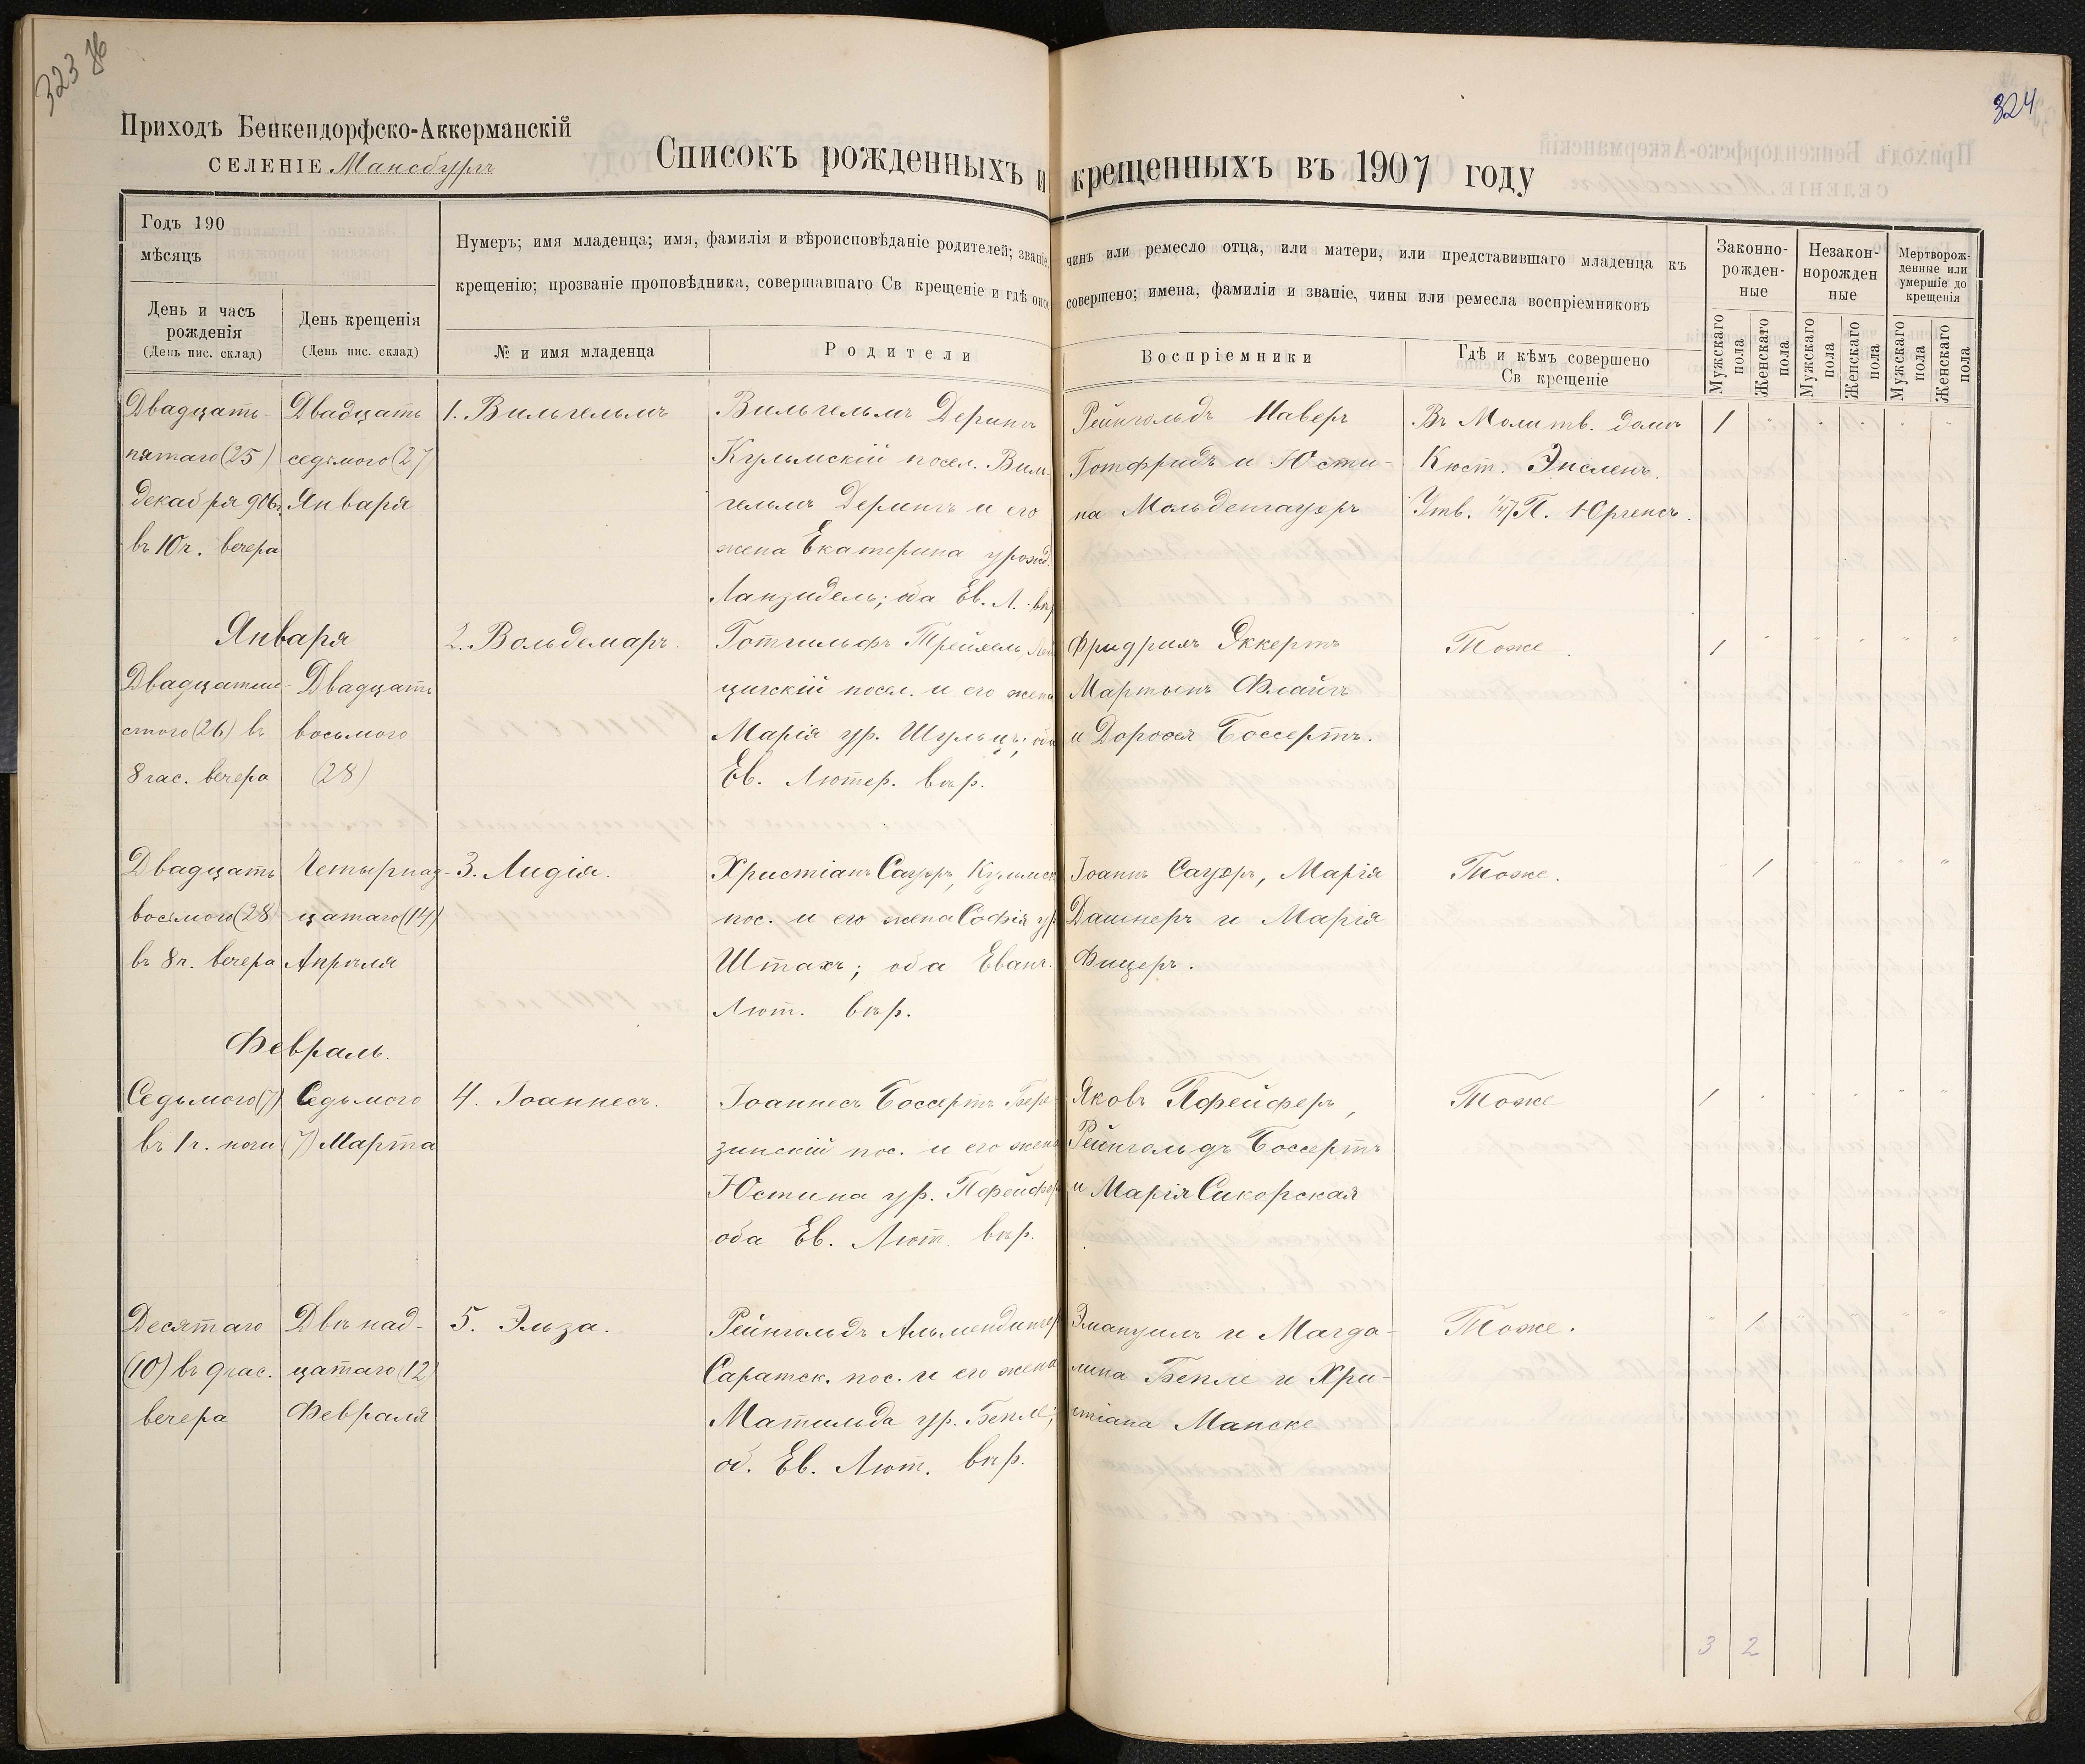 323
324
Приходъ Бенкендорфско-Аккерманскій
СЕЛЕНІЕ Мансбургъ
Списокъ рожденныхъ и крещенныхъ въ 1907 году
Годъ 190
мѣсяцъ
День и часъ
рожденія
(День пис. склад)
День крещенія
(День пис. склад)
Нумеръ; имя младенца; имя, фамилія и вѣроисповѣданіе родителей; званіе, чинъ или ремесло отца, или матери, или представившаго младенца къ
крещенію; прозваніе проповѣдника, совершавшаго Св крещеніе и гдѣ оное совершено; имена, фамиліи и званіе, чины или ремесла воспріемниковъ
№ и имя младенца
Родители
Воспріемники
Гдѣ и кѣмъ совершено
Св крещеніе
Законно-
рожден-
ные
Незакон-
норожден
ные
Мертворож-
денные или
умершіе до
крещенія
Мужскаго
пола
Женскаго
пола
Мужскаго
пола
Женскаго
пола
Мужскаго
пола
Женскаго
пола
Двадцать-
пятаго (25)
декабря 906г.
въ 10 ч. вечера
Двадцать
седьмого (27
Января
1. Вильгельмъ
Вильгельмъ Дерингъ
Кульмскій посел. Виль-
гельмъ Дерингъ и его
жена Екатерина урожд.
Ланзидель; оба Ев. Л. вѣр
Рейнгольдъ Наверъ
Готфридъ и Юсти-
на Мольденгауеръ
Въ Молитв. домѣ
Кюст. Энсленъ.
Утв. П. Юргенсъ.
1
Января
Двадцатше-
стого (26) въ
8 час. вечера
Двадцать
восьмого
(28)
2. Вольдемаръ.
Готгильфъ Трейхель, Лей
цигскій посел. и его жена
Марія ур. Шульцъ; оба
Ев. Лютер. вѣр.
Фридрихъ Эккертъ
Мартынъ Флайгъ
и Дорофея Боссертъ.
Тоже.
1
Двадцать
восьмого (28
въ 8 ч. вечера
Четырнад-
цатаго (14)
Апрѣля
3. Лидія.
Христіанъ Сауэръ, Кульмск
пос. и его жена Софія ур
Штахъ; оба Еванг.
Лют. вѣр.
Іоаннъ Сауэръ, Марія
Дашнеръ и Марія
Фицеръ.
Тоже.
1
Февраль.
Седьмого (7)
въ 1 ч. ночи
Седьмого
(7) Марта
4. Іоаннесъ.
Іоаннесъ Боссертъ Бере-
зинскій пос. и его жена
Юстина ур. Пфейфер
оба Ев. Лют. вѣр.
Яковъ Пфейферъ,
Рейнгольдъ Боссертъ
и Марія Сикорская
Тоже
1
Десятаго
(10) въ 9 час.
вечера
Двѣнад-
цатаго (12)
Февраля
5. Эльза.
Рейнгольдъ Альмендингер
Саратск. пос. и его жена
Матильда ур. Бепле;
об. Ев. Лют. вѣр.
Эмануилъ и Магда-
лина Бепле и Хри-
стіана Манске
Тоже.
1
3 2